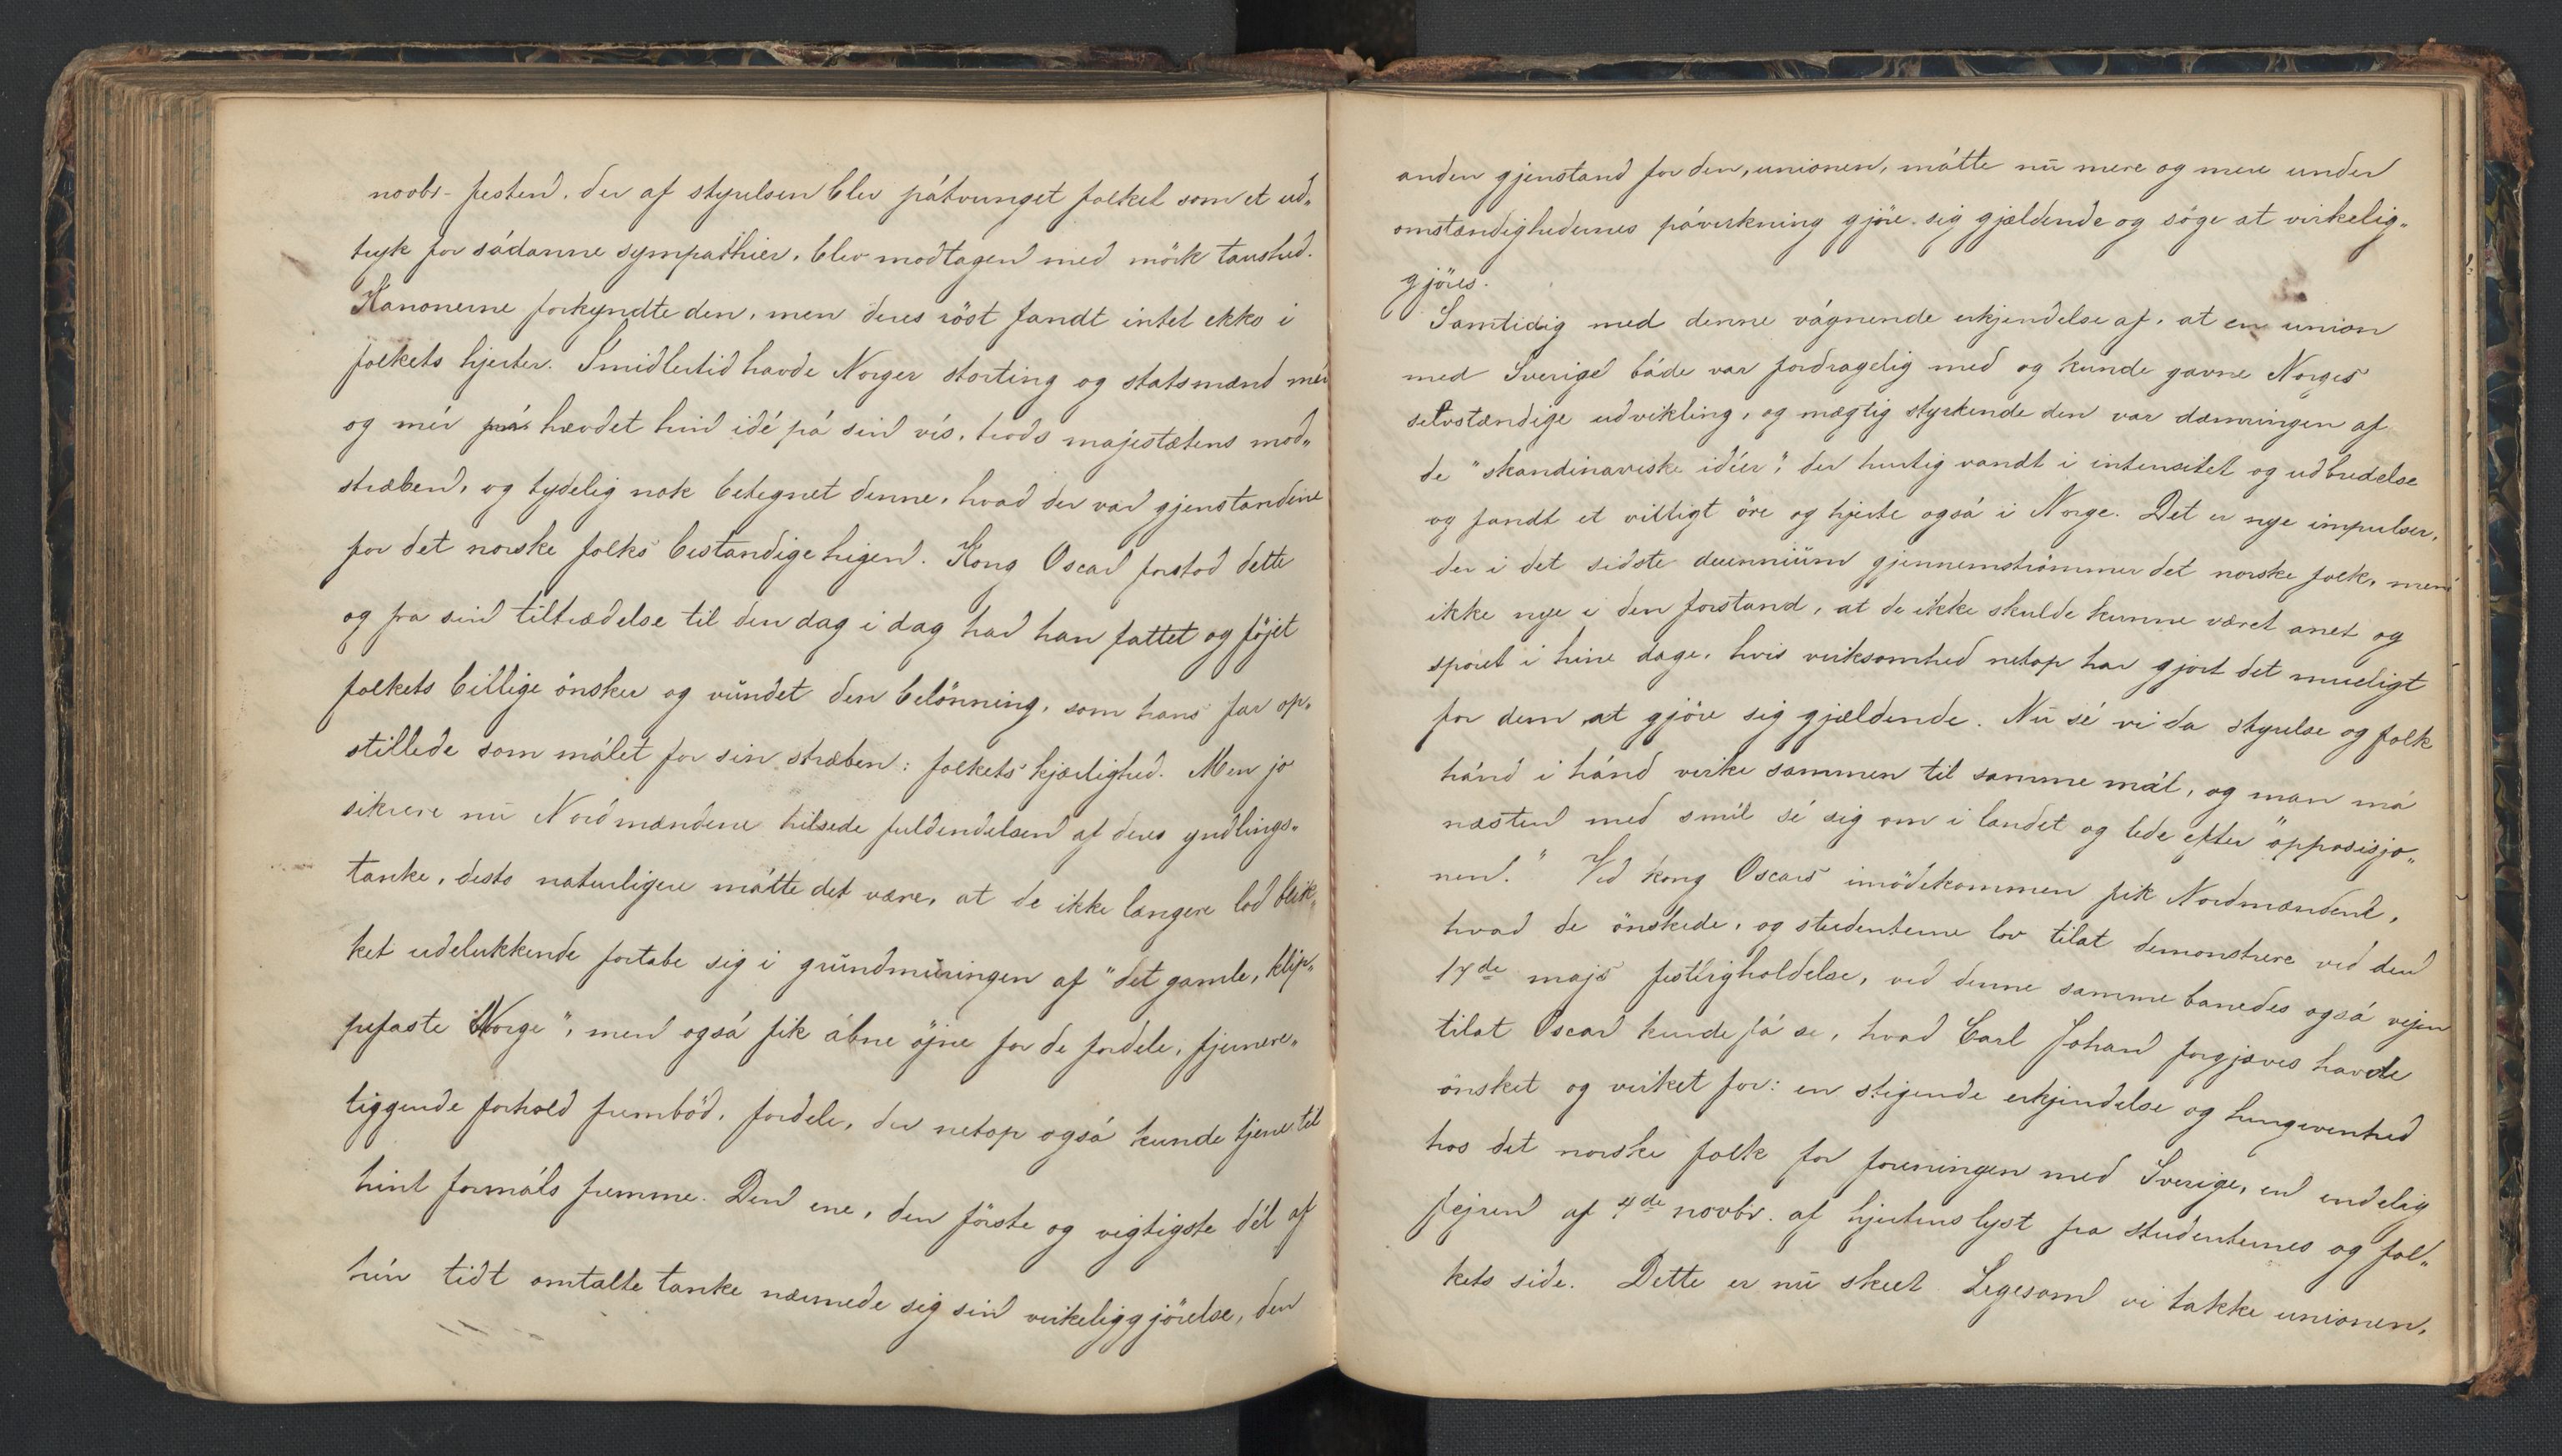 novbr-festen, der af styrelsen blev påtvunget folket som et ud„
tryk for sådanne sympathier, blev modtagen med mörk taushed.
Kanonerne forkyndte den, men deres röst fandt intet ekko i
folkets hjerter. Imidlertid havde Norges storting og statsmænd mér
og mér hævdet hin idé på sin vis, trods majestætens mod„
stræben, og tydelig nok betegnet denne, hvad der var gjenstandene
for det norske folks bestandige higen. Kong Oscar forstod dette
og fra sin tiltrædelse til den dag i dag har han fattet og föjet
folkets billige önsker og vundet den belönning, som hans far op„
stillede som målet for sin stræben: folkets kjærlighed. Men jo
sikrere nu Nordmændene hilsede fuldendelsen af deres yndlings„
tanke, desto naturligere måtte det være, at de ikke længere lod blik„
ket udelukkende fortabe sig i grundmuringen af "det gamle, klip„
pefaste Norge", men også fik åbne öjne for de fordele, fjernere„
liggende forhold frembød, fordele, der netop også kunde tjene til
hint formåls fremme. Den ene, den förste og vigtigste dél af
hin tidt omtalte tanke nærmede sig sin virkeliggjörelse, den
anden gjenstand for den, unionen, måtte nu mere og mere under
omstændighedernes påvirkning gjöre sig gjældende og söge at virkelig„
gjöres.
Samtidig med denne vågnende erkjendelse af, at en union
med Sverige både var fordragelig med og kunde gavne Norges
selvstændige udvikling, og mægtig styrkende den var dæmringen af
de "skandinaviske idéer", der hurtig vandt i intensitet og udbredelse
og fandt et villigt öre og hjerte også i Norge. Det er nye impulser,
der i det sidste decennium gjennemströmmer det norske folk, men
ikke nye i den forstand, at de ikke skulde kunne været anet og
sporet i hine dage, hvis virksomhed netop har gjort det mueligt
for dem at gjöre sig gjældende. Nu sé vi da styrelse og folk
hånd i hånd virke sammen til samme mål, og man må
næsten med smil sé sig om i landet og lede efter "opposisjo„
nen." Ved kong Oscars imödekommen fik Nordmændene,
hvad de önskede, og studenterne lov tilat demonstrere ved den
17de majs festligholdelse, ved denne samme banedes også vejen
tilat Oscar kunde få se, hvad Carl Johan forgjæves havde
önsket og virket for: en stigende erkjendelse og hengivenhed
hos det norske folk for foreningen med Sverige, en endelig
fejren af 4de novbr. af hjertens lyst fra studenternes og fol„
kets side. Dette er nu skeet. Ligesom vi takke unionen,